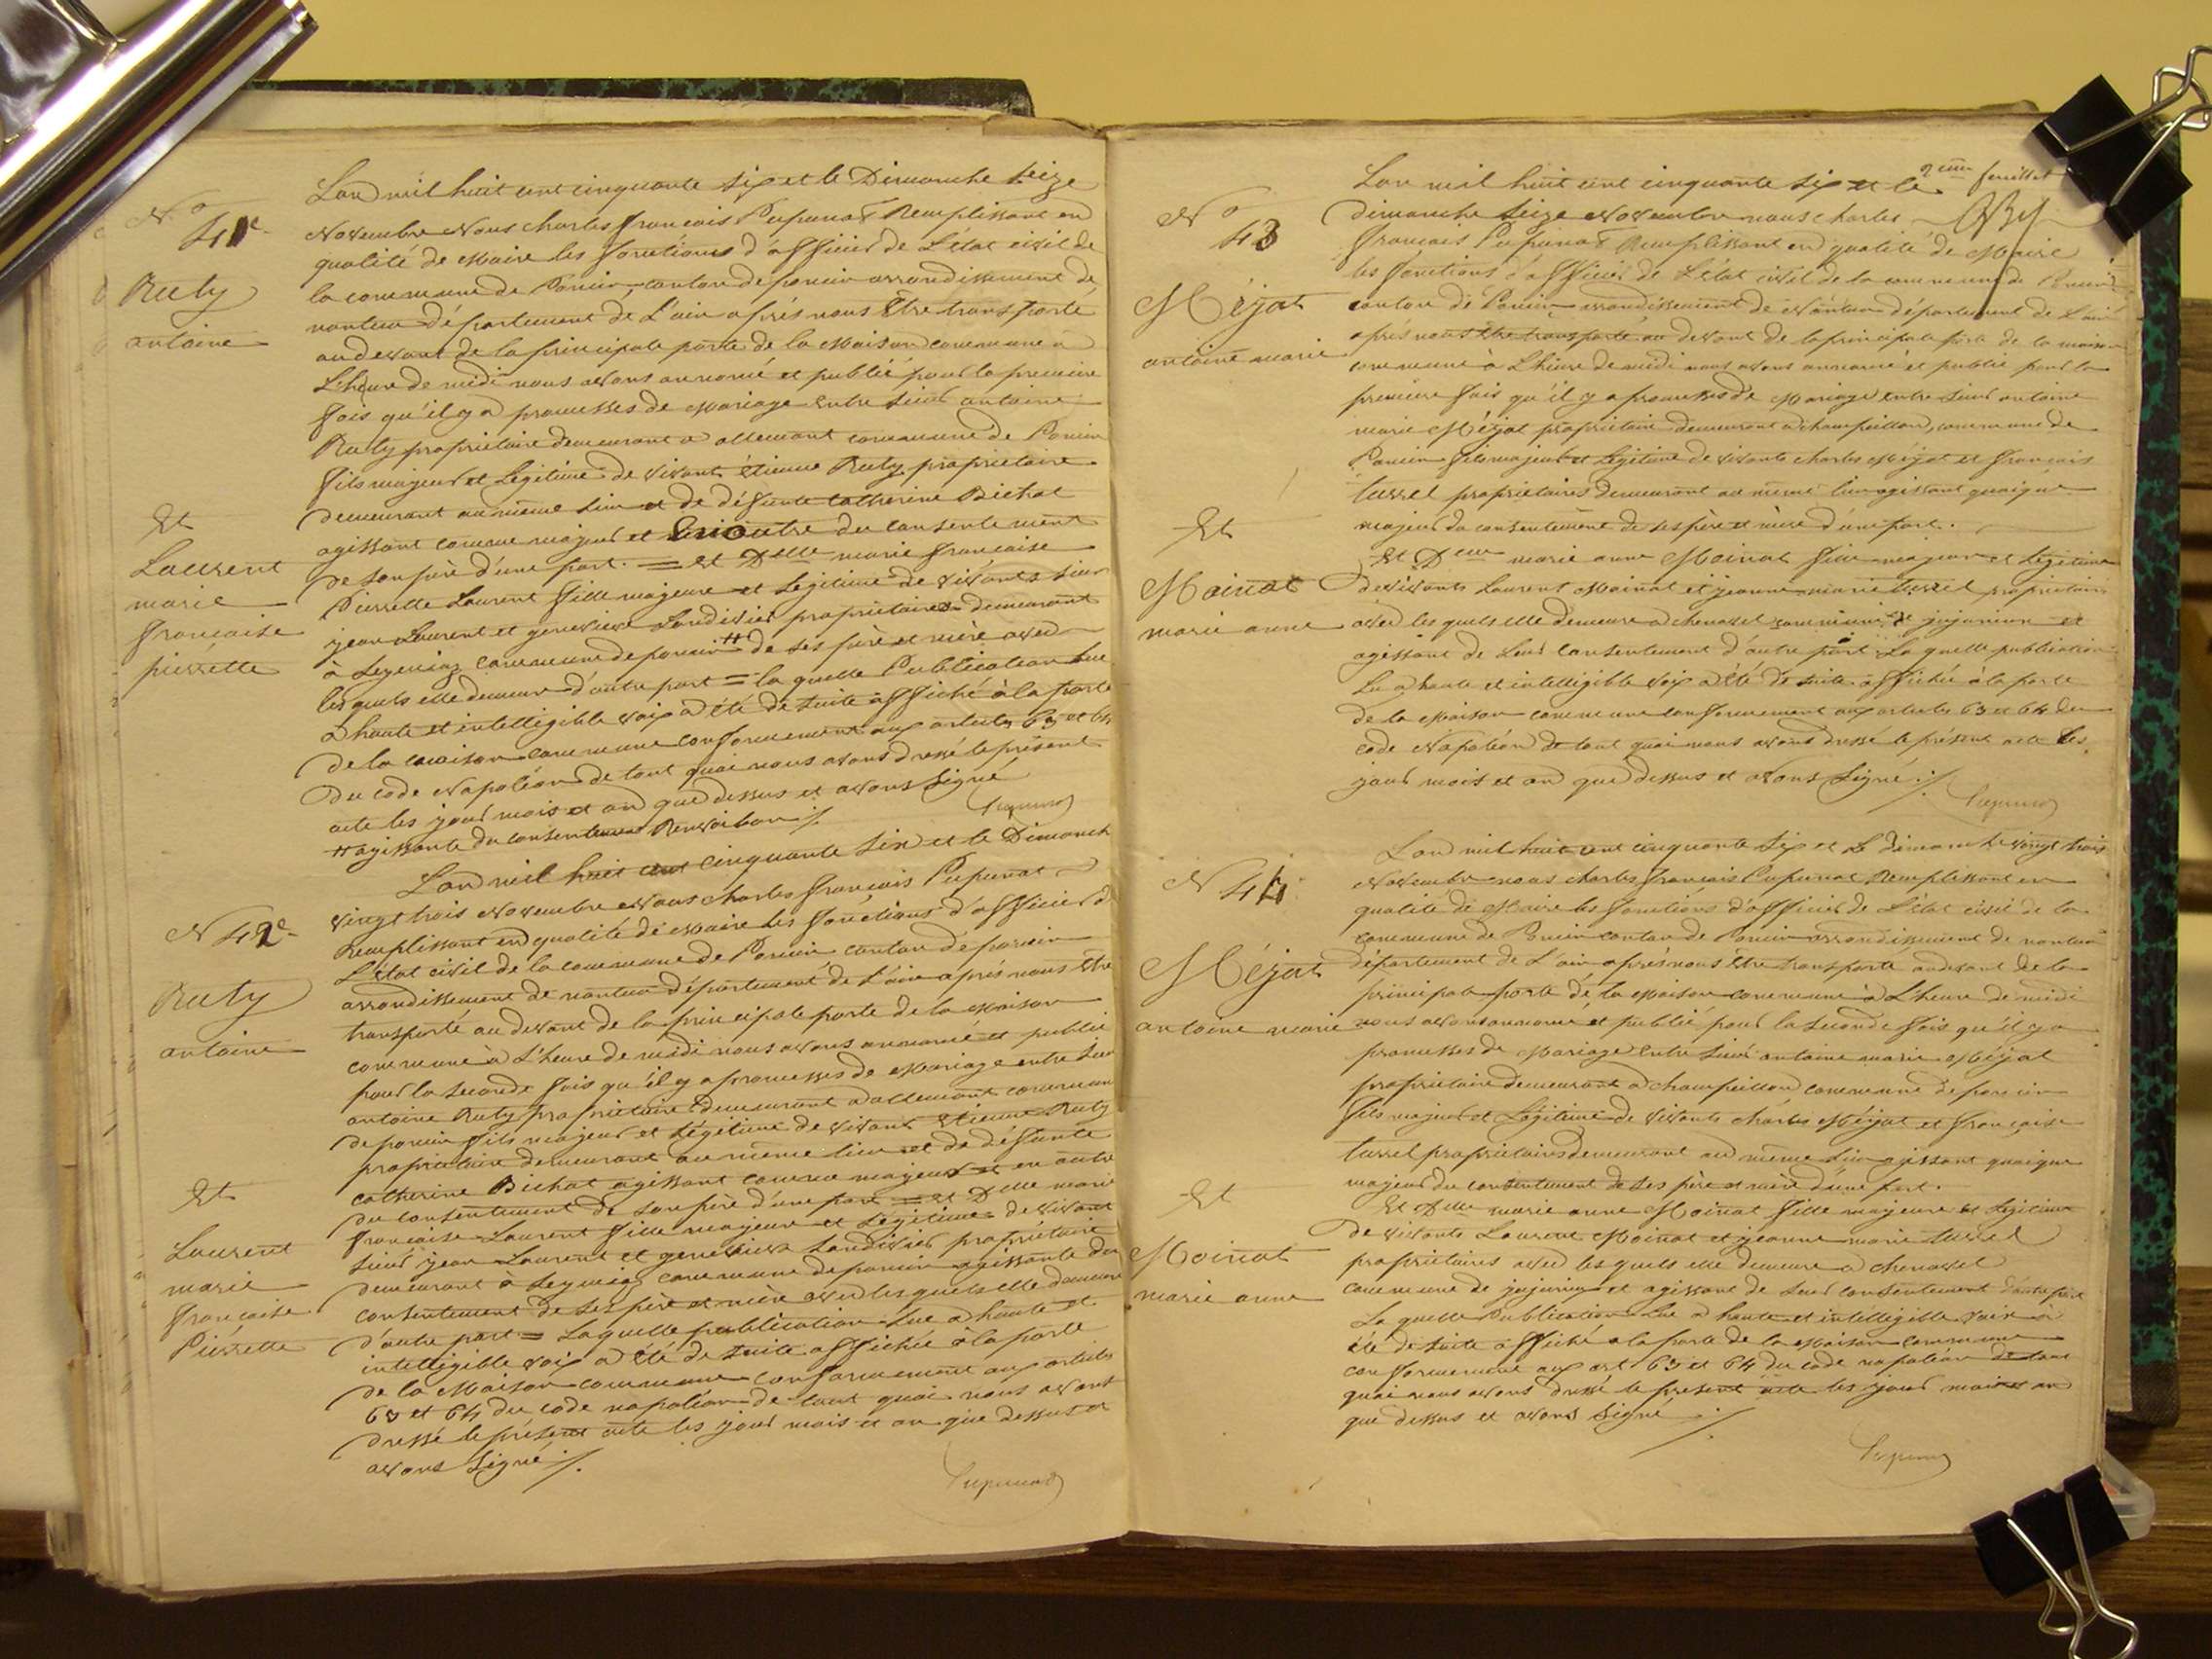 N° 41e
Ruty
antoine
Et
Laurent
marie
françoise
pierrette
Lan mil huit cent cinquante six et le Dimanche seize
Novembre Nous charles françois Pupunat Remplissant en
qualité de Maire les fonctions d'officier de L'état civil de
la commune de Poncin, canton de poncin arrondissement de
nantua département de L'ain après nous être transporté
au devant de la principale porte de la Maison commune a
L'heure de midi nous avons annoncé et publié pour la premiere
fois qu'il y a promesses de Mariage entre sieur antoine
Ruty propriétaire demeurant a allemant commune de Poncin
fils majeur et Légitime de vivant étienne Ruty propriétaire
demeurant au même lieu et de défunte catherine Bichat
agissant comme majeur et En outre du consentement
de son père d'une part. = et Delle marie françoise
Pierrette Laurent fille majeure et Légitime de vivants sieur
jean Laurent et genevieve Sondivier propriétaires demeurant
à Leymiaz commune de poncin # de ses père et mère avec
lesquels elle demeure d'autre part = la quelle Publication lue
a haute et intelligible voix a été de suite affiché à la porte
de la maison commune conformement aux articles 63 et 64
du code Napoléon de tout quoi nous avons dressé le présent
acte les jour mois et an que dessus et avons signé
# agissante du consentement Renvoi bon ./. Pupunat
N 42e
Ruty
antoine
Et
Laurent
marie
françoise
Pierrette
Lan mil huit cent cinquante six et le Dimanche
vingt trois Novembre Nous charles françois Pupunat
Remplissant en qualité de Maire les fonctions d'officier d
L'état civil de la commune de Poncin canton de poncin
arrondissement de nantua département de L'ain après nous être
transporté au devant de la principale porte de la Maison
commune à L'heure de midi nous avons annoncé et publié
pour la seconde fois qu'il y a promesses de Mariage entre sieur
antoine Ruty propriétaire demeurant a allemant commune
de poncin fils majeur et Légitime de vivant Etienne Ruty
propriétaire demeurant au même lieu et de défunte
catherine Bichat agissant comme majeur et en outre
du consentement de son père d'une part = et Delle marie
françoise Laurent fille majeure et Légitime de vivant
sieur jean Laurent et genevieve Sondivier propriétaire
demeurant à Leymiaz commune de poncin agissante du
consentement de ses père et mère avec lesquels elle demeure
d'autre part = Laquelle publication lue a haute et
intelligible voix a été de suite affichée à la porte
de la Maison commune conformement aux articles
63 et 64 du code napoléon de tout quoi nous avons
dressé le présent acte les jour mois et an que dessus et
avons signé ./.
Pupunat
2eme feuillet
N° 43
Méjat
antoine marie
Et
Moinat
marie anne
Lan mil huit cent cinquante six et le
dimanche seize Novembre nous charles
françois Pupunat Remplissant en qualité de Maire
les fonctions d'officier de L'état civil de la commune de Poncin
canton de Poncin arrondissement de Nantua département de L'ain
après nous être transporté au devant de la principale porte de la maison
commune à L'heure de midi nous avons annoncé et publié pour la
premiere fois qu'il y a promesses de Mariage entre sieur antoine
marie Méjat propriétaire demeurant a champeillon, commune de
Poncin fils majeur et Légitime de vivants charles Méjat et françoise
turrel propriétaires demeurant au même lieu agissant quoique
majeur du consentement de ses père et mère d'une part.
Et Delle marie anne Moinat fille majeure et Légitime
de vivants Laurent Moinat et jeanne marie turrel propriétaires
avec les quels elle demeure a chenavel commune de jujurieux et
agissant de Leur consentement d'autre part La quelle publication
Lu a haute et intelligible voix a été de suite affiché à la porte
de la Maison commune conformement aux articles 63 et 64 du
code Napoléon de tout quoi nous avons dressé le présent acte Les
jour mois et an que dessus et avons signé ./.
Pupunat
N 44
Méjat
antoine marie
Et
Moinat
marie anne
Lan mil huit cent cinquante six et Le dimanche vingt trois
Novembre nous charles françois Pupunat Remplissant en
qualité de Maire les fonctions d'officier de L'état civil de la
commune de Poncin canton de Poncin arrondissement de nantua
département de L'ain après nous être transporté au devant de la
principale porte de la Maison commune à L'heure de midi
nous avons annoncé et publié pour la seconde fois qu'il y a
promesses de Mariage entre sieur antoine marie Méjat
propriétaire demeurant a champeillon commune de poncin
fils majeur et Légitime de vivants charles Méjat et françoise
turrel propriétaires demeurant au même lieu agissant quoique
majeur du consentement de ses père et mère d'une part.
Et Delle marie anne Moinat fille majeure et Légitime
de vivants Laurent Moinat et jeanne marie turrel
propriétaires avec les quels elle demeure a chenavel
commune de jujurieux et agissant de Leur consentement d'autre part
La quelle Publication Lue a haute et intelligible voix a
été de suite affiché a la porte de la Maison commune
conformement aux art. 63 et 64 du code napoléon de tout
quoi nous avons dressé le présent acte les jour mois et an
que dessus et avons signé ./.
Pupunat